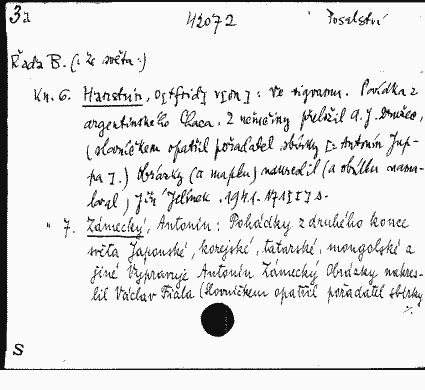 3a 42072 Poselství
Řada B. (: Ze světa :)
Kn. 6. Hanstein, O[tfrid] v[on] : Ve signamu. Povídka z
argentinského Chaca. Z němčiny přeložil A. J.
(slovníčkem opatřil pořadatel sbírky [: Antonín Jup-
pa ].) Obrázky (a mapku) nakreslil (a obálku namа-
loval) Jiří Jelínek. 1941. 171 [I] s.
" 7. Zámecký, Antonín : Pohádky z druhého konce
světa Japonské, korejské, tatarské, mongolské a
jiné Vypravuje Antonín Zámecký Obrázky nakres-
lil Václav Fiala (Slovníčkem opatřil pořadatel sbírky
%.
S